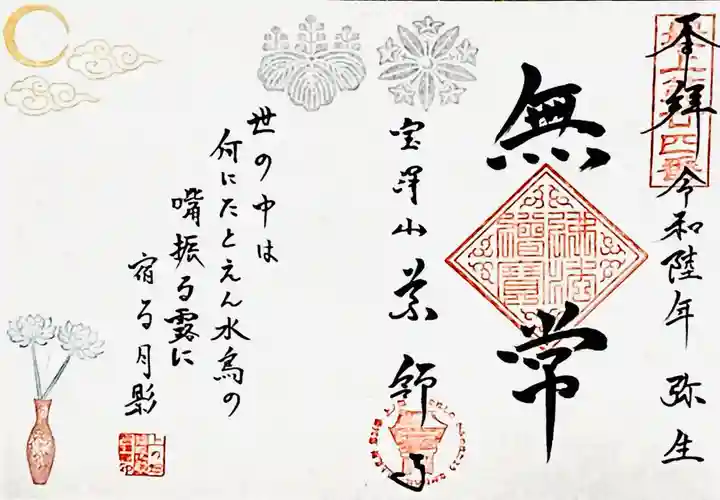 奉拝 令和陸年 弥生
無常
宝澤山 薬師寺
世の中は
何にたとえん水鳥の
嘴振る露に
宿る月影
佛法僧寶